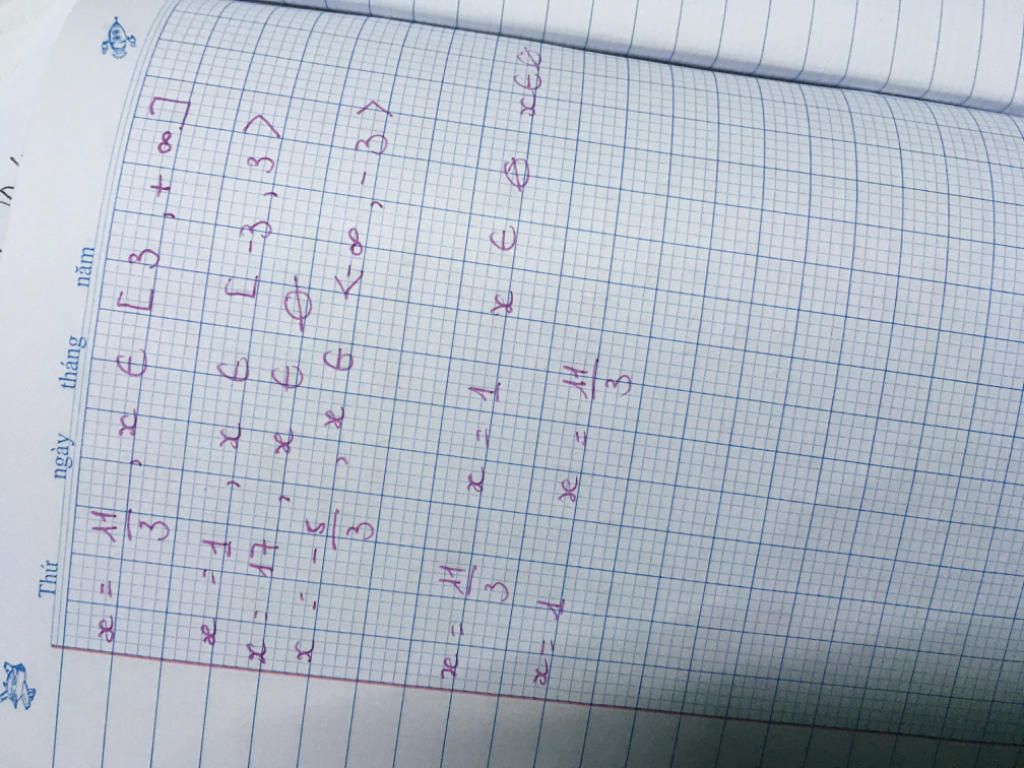 Thứ ngày tháng năm
x = 11/3 , x ∈ [3 , + ∞]
x = 1 , x ∈ [-3 , 3>
x = 17 , x ∈ ∅
x = -5/3 , x ∈ <-∞ , -3>
x = 11/3 x = 1 x ∈ ∅ x∈
x = 1 x = 11/3